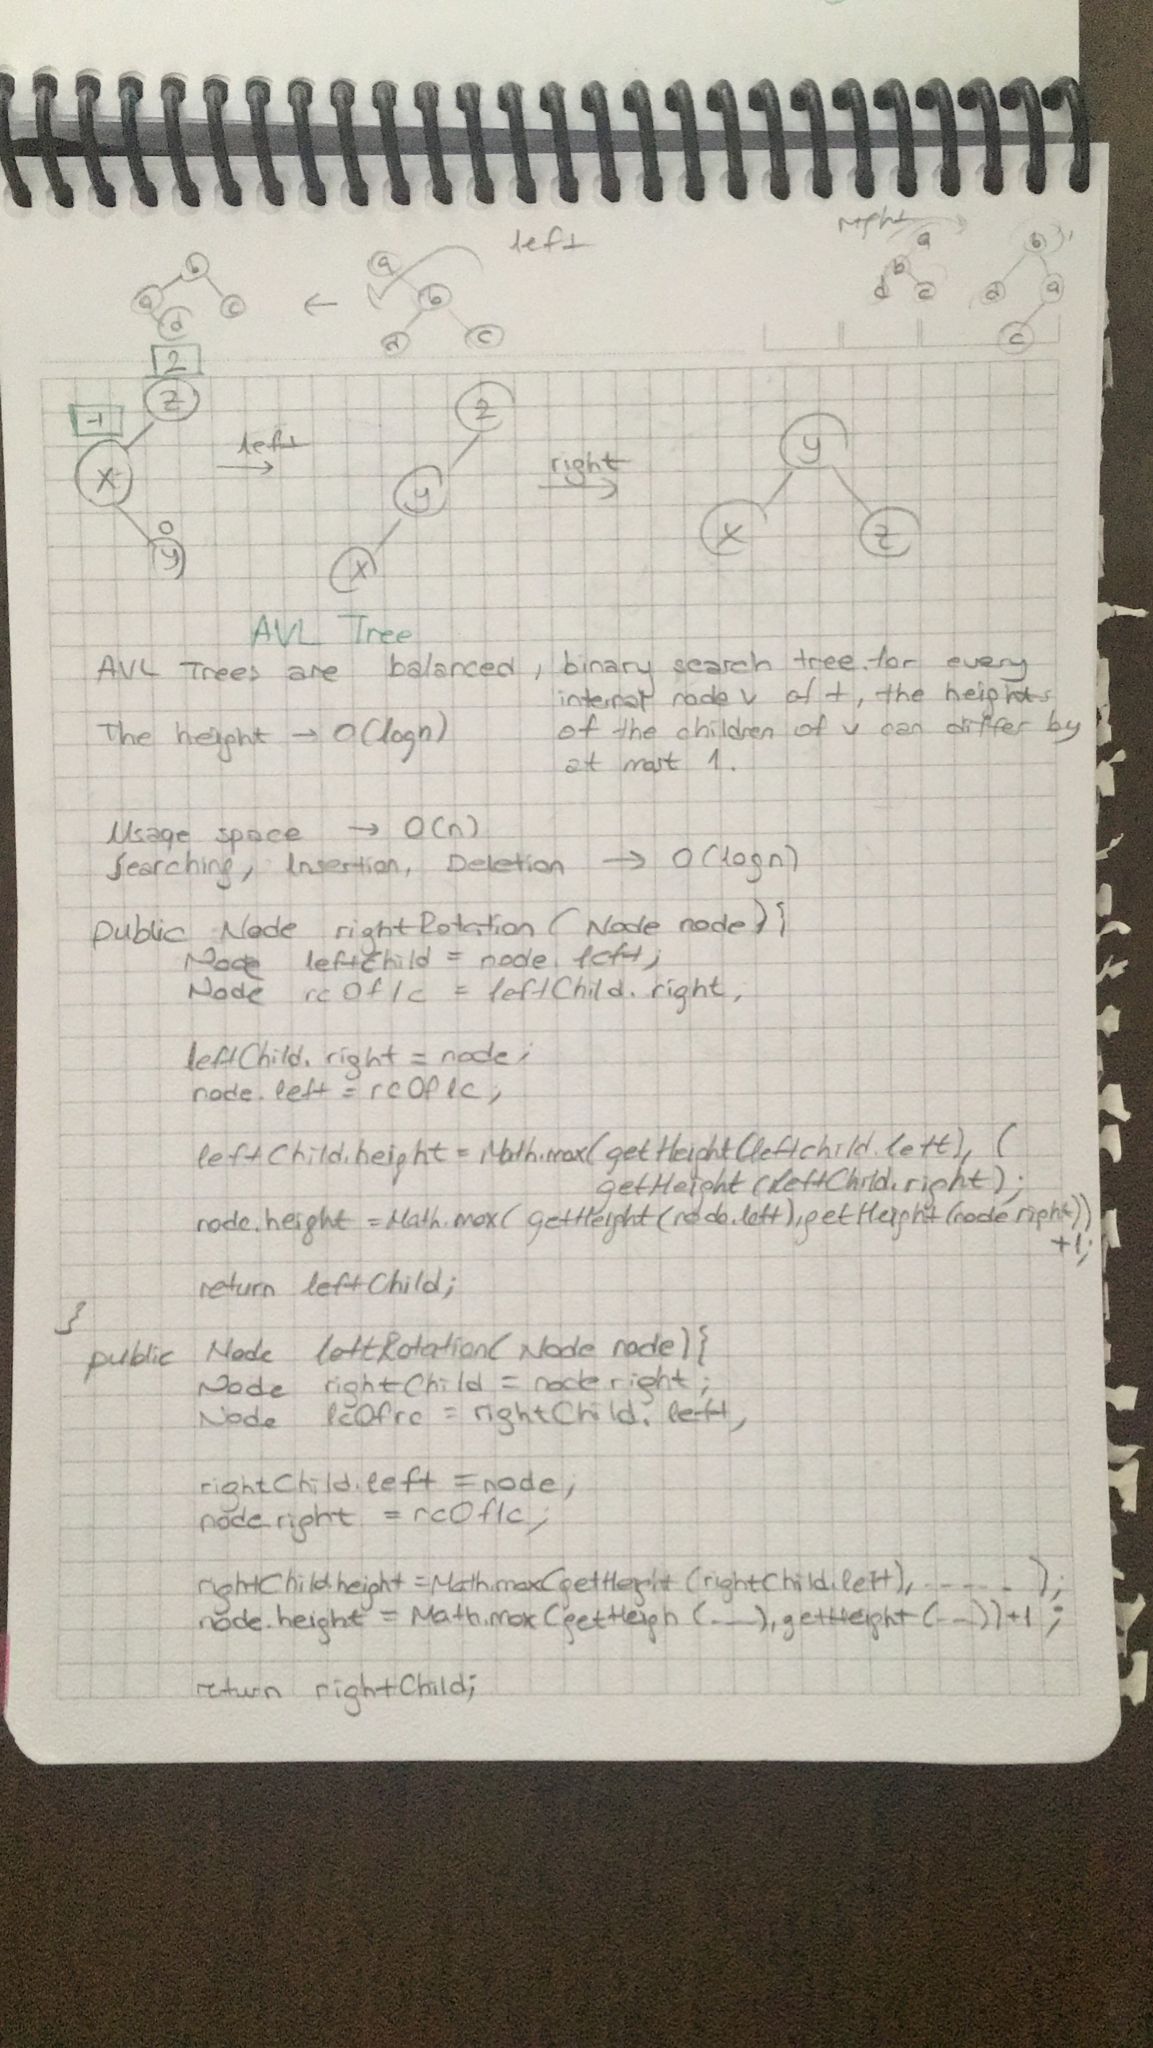 left
right
b
a
c
d
←
a
b
d
c
a
b
d
c
b
d
a
c
2
z
-1
x
0
y
left
→
z
y
x
right
→
y
x
z
AVL Tree
AVL Trees are balanced, binary search tree. for every
internal node v of t, the heights
The height → O(logn) of the children of v can differ by
at most 1.
Usage space → O(n)
Searching, Insertion, Deletion → O(logn)
public Node rightRotation(Node node){
Node leftChild = node.left;
Node rcOflc = leftChild.right,
leftChild.right = node;
node.left = rcOflc;
leftChild.height = Math.max(getHeight(leftchild.left), (
getHeight(leftChild.right);
node.height = Math.max( getHeight(node.left), getHeight(node right))
+1;
return leftChild;
}
public Node leftRotation( Node node){
Node rightChild = node right;
Node lcOfrc = rightChild. left,
rightChild.left = node,
node.right = rcOflc;
rightChild.height = Math.max(getHeight (rightChild.left), ------ );
node.height = Math.max (getHeigh (---), getHeight (---))+1;
return rightChild;